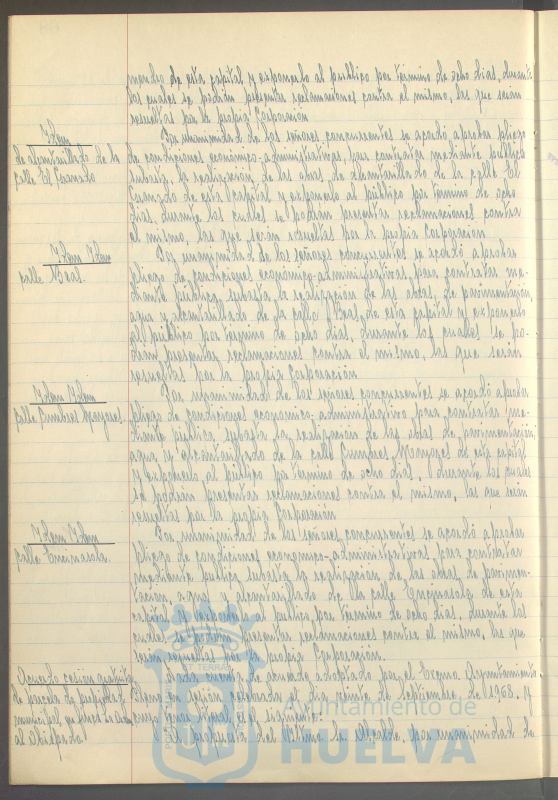 de esta capital y exponerlo al público por término de ocho días, durante
los cuales se podrán presentar reclamaciones contra el mismo, las que serán
resueltas por la propia Corporación
Idem
de alcantarillado de la
calle El Granado
Por unanimidad de los señores concurrentes se acordó aprobar pliego
de condiciones económico-administrativas, para contratar mediante pública
subasta, la realización de las obras de alcantarillado de la calle El
Granado de esta capital y exponerlo al público por término de ocho
días, durante los cuales se podrán presentar reclamaciones contra
el mismo, las que serán resueltas por la propia Corporación
Idem Idem
calle Moras.
Por unanimidad de los señores concurrentes se acordó aprobar
pliego de condiciones económico-administrativas, para contratar me-
diante pública subasta la realización de las obras de pavimentación,
agua y alcantarillado de la calle de esta capital y exponerlo
al público por término de ocho días, durante los cuales se po-
drán presentar reclamaciones contra el mismo, las que serán
resueltas por la propia Corporación
Idem Idem
calle Cumbres Mayores.
Por unanimidad de los señores concurrentes se acordó aprobar
pliego de condiciones económico-administrativo para contratar me-
diante pública subasta la realización de las obras de pavimentación
agua y alcantarillado de la calle Cumbres Mayores de esta capital
y exponerlo al público por término de ocho días, durante los cuales
se podrán presentar reclamaciones contra el mismo, las que serán
resueltas por la propia Corporación
Idem Idem
calle Encinasola.
Por unanimidad de los señores concurrentes se acordó aprobar
pliego de condiciones económico-administrativas para contratar
mediante pública subasta la realización de las obras de pavimen-
tación, agua y alcantarillado de la calle Encinasola de esta
capital y exponerlo al público por término de ocho días, durante los
cuales se podrán presentar reclamaciones contra el mismo, las que
serán resueltas por la propia Corporación.
Acuerdo cesión gratuita
de parcela de propiedad
municipal
al Obispado.
Dada cuenta de acuerdo adoptado por el Excmo. Ayuntamiento
Pleno en sesión celebrada el día veinte de Septiembre de 1968, y
cuyo tenor literal es el siguiente:
"A propuesta del Iltmo. Sr. Alcalde, por unanimidad de
Ayuntamiento de
HUELVA